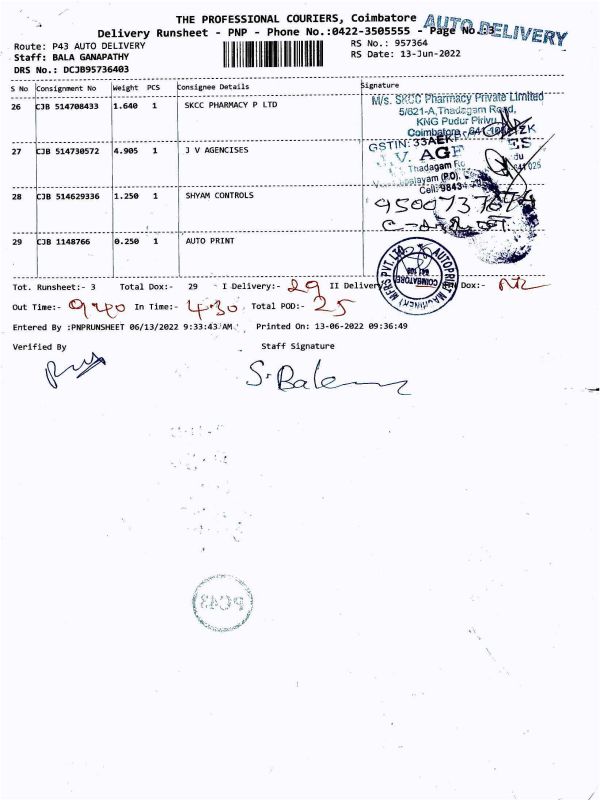 THE PROFESSIONAL COURIERS, Coimbatore
AUTO DELIVERY
Delivery Runsheet - PNP - Phone No.:0422-3505555 - Page No.:3
Route: P43 AUTO DELIVERY
RS No.: 957364
Staff: BALA GANAPATHY
RS Date: 13-Jun-2022
DRS No.: DCJB95736403
S No Consignment No Weight PCS Consignee Details Signature
26 CJB 514708433 1.640 1 SKCC PHARMACY P LTD
M/s. SKCC Pharmacy Private Limited
5/621-A, Thadagam Road,
KNG Pudur Pirivu,
Coimbatore - 641 108
GSTIN: 33AEKP
27 CJB 514730572 4.905 1 J V AGENCISES
J. V. AGE ES
Thadagam Ro
641 025
(P.O).
Cell: 9843
28 CJB 514629336 1.250 1 SHYAM CONTROLS
29 CJB 1148766 0.250 1 AUTO PRINT
AUTOPRINT MACHINERY MFRS PVT. LTD
COIMBATORE
Tot. Runsheet:- 3 Total Dox:- 29 I Delivery:- 29 II Delivery Dox:-
Out Time:- 9.40 In Time:- 4.30 Total POD:- 25
Entered By :PNPRUNSHEET 06/13/2022 9:33:43 AM Printed On: 13-06-2022 09:36:49
Verified By Staff Signature
S. Bale